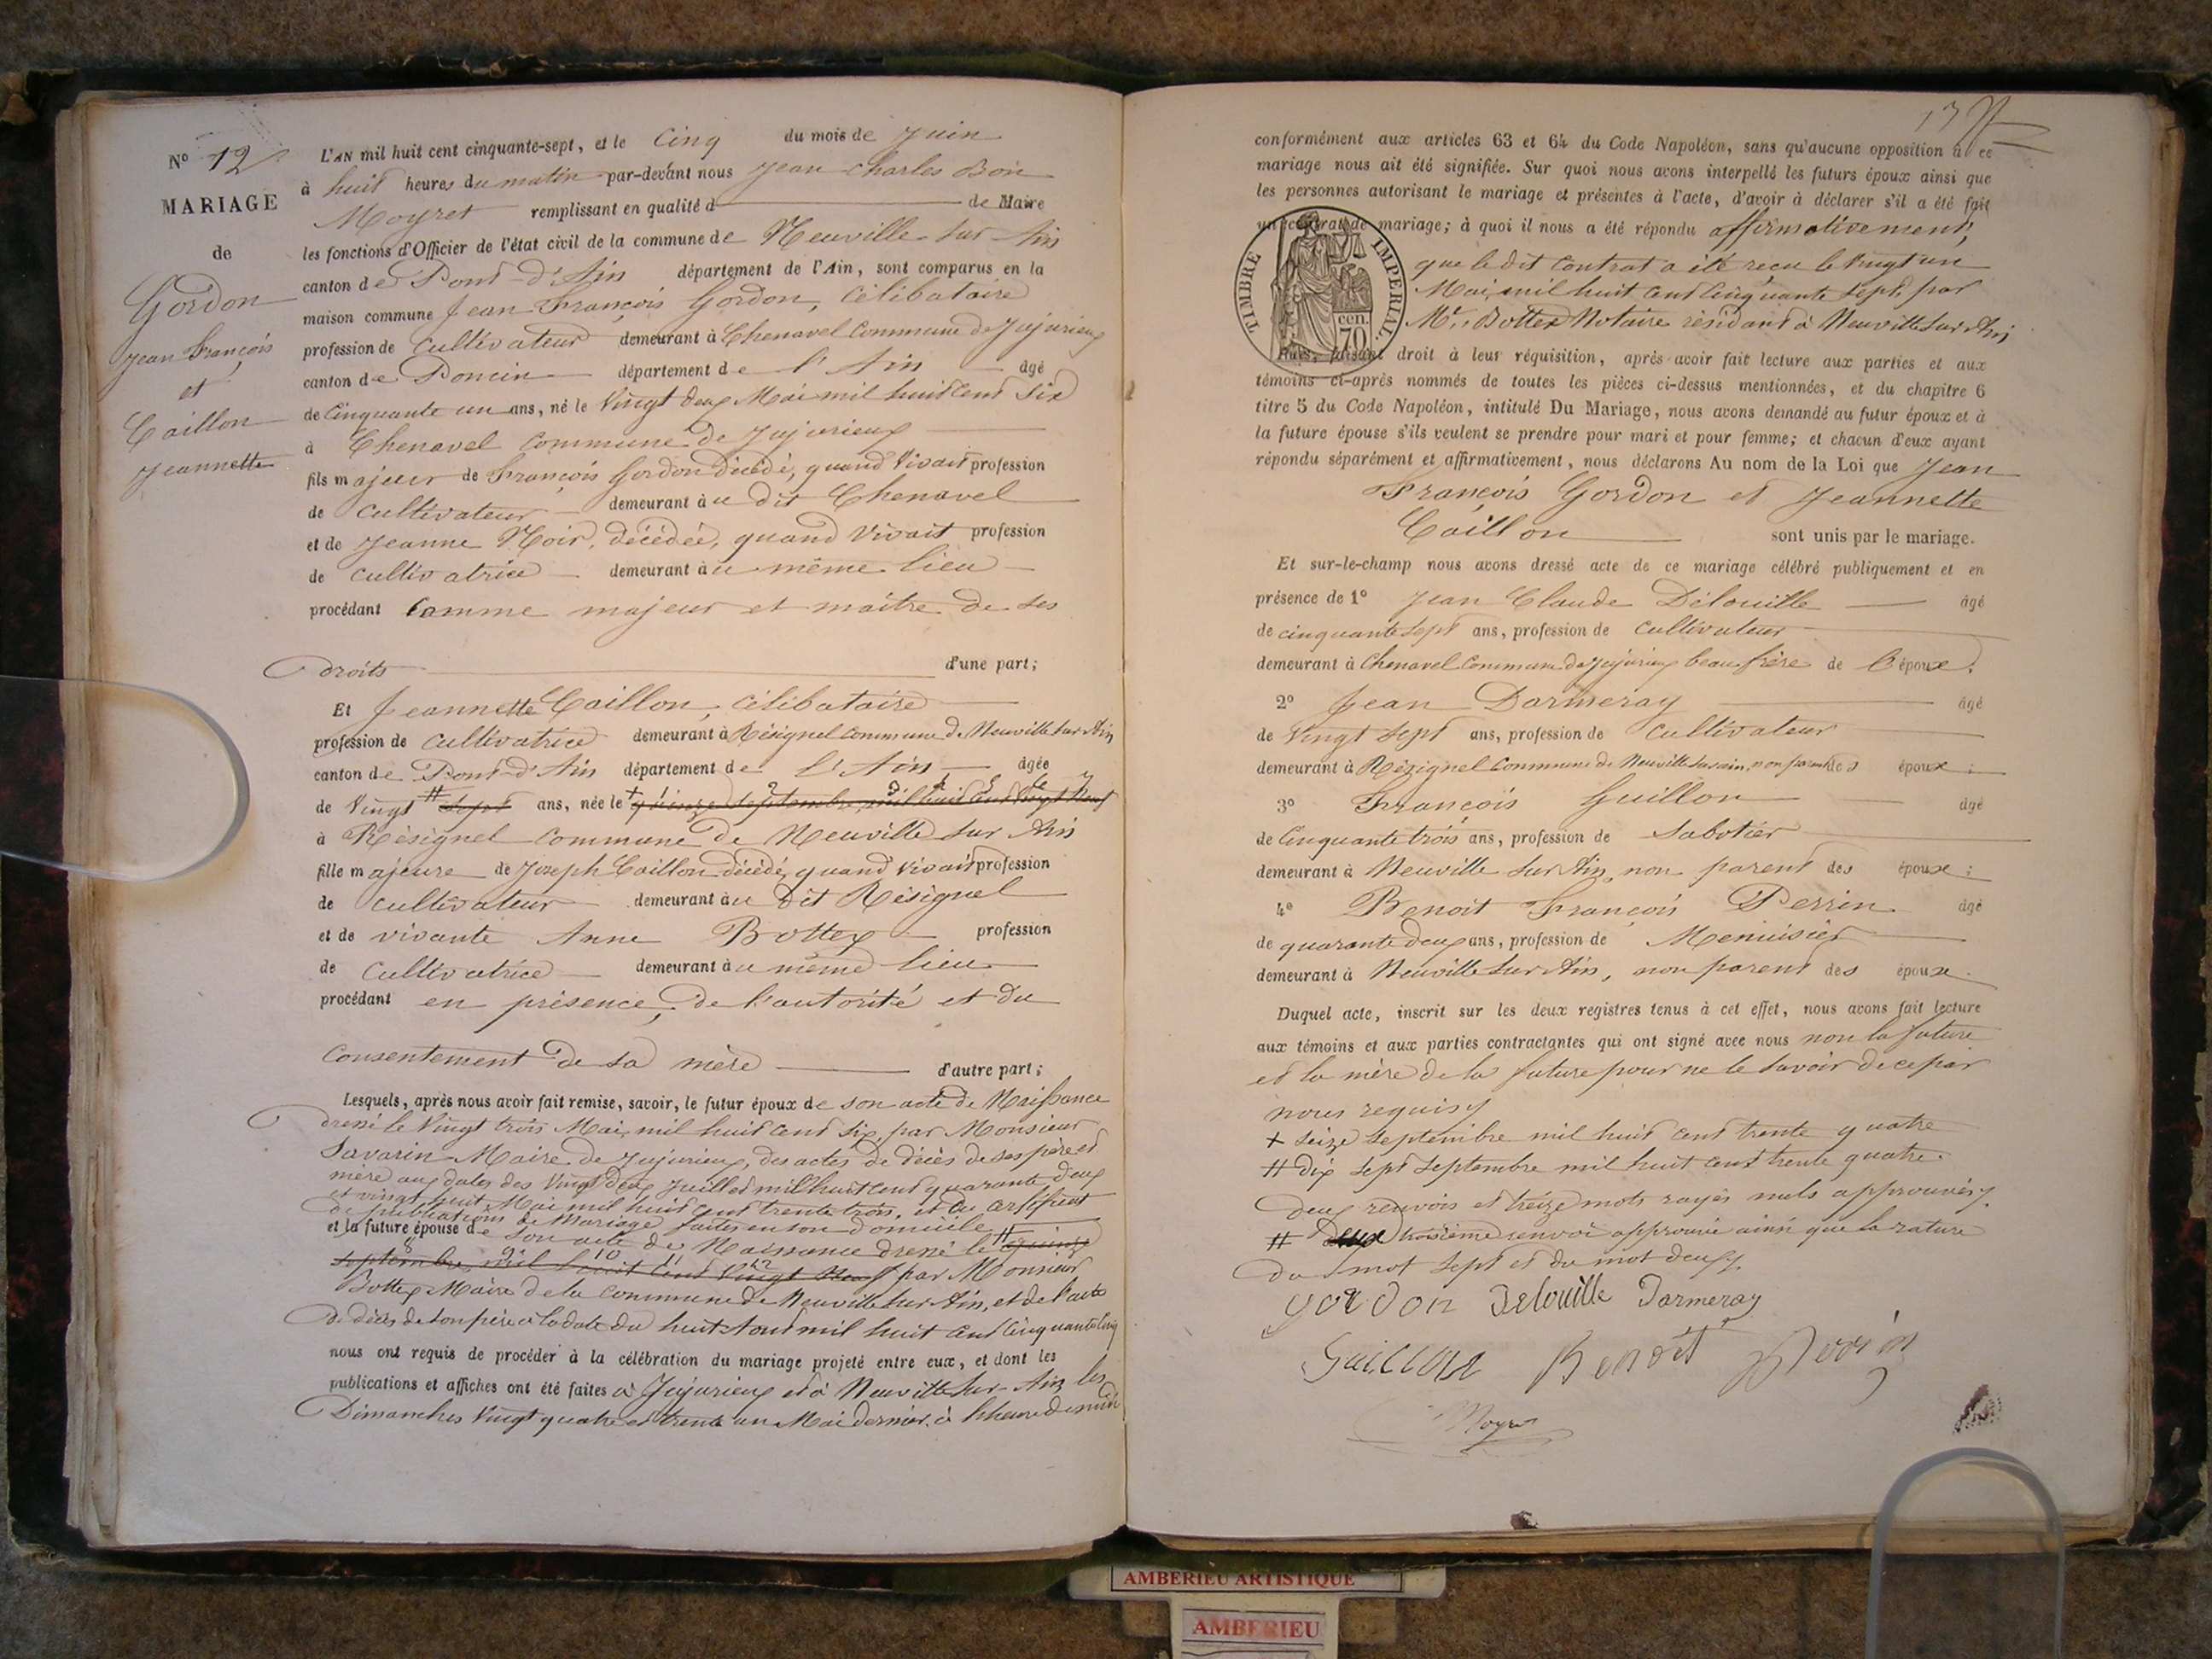 N° 12
MARIAGE
de
Gordon
Jean François
et
Caillon
Jeannette
L'AN mil huit cent cinquante-sept, et le Cinq du mois de Juin
à huit heures du matin par-devant nous Jean Charles Bon
Moyret remplissant en qualité d de Maire
les fonctions d'Officier de l'état civil de la commune de Neuville sur Ain
canton de Pont-d'Ain département de l'Ain, sont comparus en la
maison commune Jean François Gordon, Célibataire
profession de Cultivateur demeurant à Chenavel Commune de Jujurieux
canton de Poncin département de l'Ain âgé
de Cinquante un ans, né le Vingt deux Mai mil huit cent Six
à Chenavel Commune de Jujurieux
fils majeur de François Gordon décédé, quand Vivait profession
de Cultivateur demeurant au dit Chenavel
et de Jeanne Noir, décédée, quand Vivait profession
de Cultivatrice demeurant au même lieu
procédant Comme majeur et maître de ses
droits d'une part;
Et Jeannette Caillon, Célibataire
profession de Cultivatrice demeurant à Résignel Commune de Neuville sur Ain
canton de Pont-d'Ain département de l'Ain âgée
de Vingt # sept ans, née le + quinze septembre mil huit cent Vingt Neuf
à Résignel Commune de Neuville sur Ain
fille majeure de Joseph Caillon décédé, quand Vivait profession
de Cultivateur demeurant au dit Résignel
et de vivante Anne Bottex profession
de Cultivatrice demeurant au même lieu
procédant en présence, de l'autorité et du
Consentement de sa mère d'autre part;
Lesquels, après nous avoir fait remise, savoir, le futur époux de son acte de Naissance
dressé le Vingt trois Mai, mil huit cent six, par Monsieur
Savarin Maire de Jujurieux, des actes de décès de ses père et
mère aux dates des Vingt deux Juillet mil huit cent quarante deux
et vingt huit Mai mil huit cent trente trois, et du certificat
de publications de Mariage faites en son domicile
et la future épouse de son acte de Naissance dressé le # quinze
septembre mil huit cent Vingt Neuf par Monsieur
Bottex Maire de la Commune de Neuville sur Ain, et de l'acte
de décès de son père à la date du huit Aout mil huit cent Cinquante Cinq
nous ont requis de procéder à la célébration du mariage projeté entre eux, et dont les
publications et affiches ont été faites à Jujurieux et à Neuville sur Ain les
Dimanches Vingt quatre et trente un Mai dernier, à l'heure de midi
conformément aux articles 63 et 64 du Code Napoléon, sans qu'aucune opposition à ce
mariage nous ait été signifiée. Sur quoi nous avons interpellé les futurs époux ainsi que
les personnes autorisant le mariage et présentes à l'acte, d'avoir à déclarer s'il a été fait
un contrat de mariage; à quoi il nous a été répondu affirmativement,
que le dit Contrat a été reçu le Vingt un
Mai, mil huit cent Cinquante Sept, par
Mr. Bottex Notaire résidant à Neuville sur Ain
TIMBRE IMPERIAL.
cen. 70
Nous, faisant droit à leur réquisition, après avoir fait lecture aux parties et aux
témoins ci-après nommés de toutes les pièces ci-dessus mentionnées, et du chapitre 6
titre 5 du Code Napoléon, intitulé Du Mariage, nous avons demandé au futur époux et à
la future épouse s'ils veulent se prendre pour mari et pour femme; et chacun d'eux ayant
répondu séparément et affirmativement, nous déclarons Au nom de la Loi que Jean
François Gordon et Jeannette
Caillon sont unis par le mariage.
Et sur-le-champ nous avons dressé acte de ce mariage célébré publiquement et en
présence de 1° Jean Claude Délouille âgé
de cinquante sept ans, profession de Cultivateur
demeurant à Chenavel Commune de Jujurieux beau frère de l'époux.
2° Jean Darmeray âgé
de Vingt Sept ans, profession de Cultivateur
demeurant à Résignel Commune de Neuville sur ain, non parent des époux;
3° François Guillon âgé
de Cinquante trois ans, profession de Sabotier
demeurant à Neuville sur Ain, non parent des époux;
4° Benoit François Perrin âgé
de quarante deux ans, profession de Menuisier
demeurant à Neuville sur Ain, non parent des époux.
Duquel acte, inscrit sur les deux registres tenus à cet effet, nous avons fait lecture
aux témoins et aux parties contractantes qui ont signé avec nous non la future
et la mère de la future pour ne le savoir de ce par
nous requis
+ Seize Septembre mil huit cent trente quatre
# dix sept Septembre mil huit cent trente quatre.
deux renvois et treize mots rayés nuls approuvés
# deux troisième renvoi approuvé ainsi que la rature
du mot sept et du mot deux
gordon Delouille Darmeray
Guillon Benoît Perrin
Moyret
AMBERIEU ARTISTIQUE
AMBERIEU